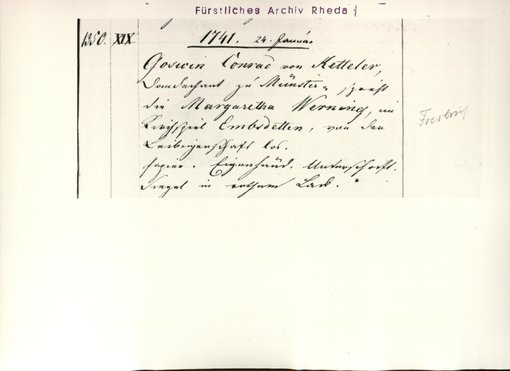 Fürstliches Archiv Rheda
1350. XIX
1741. 24. Januar
Goswin Conrad von Ketteler,
Domdechant zu Münster, spricht
die Margaretha Werning, im
Kirchspiel Embsdetten, von der
Leibeigenschaft los.
Papier. Eigenhänd. Unterschrift.
Siegel in rothem Lack.
Freibrief